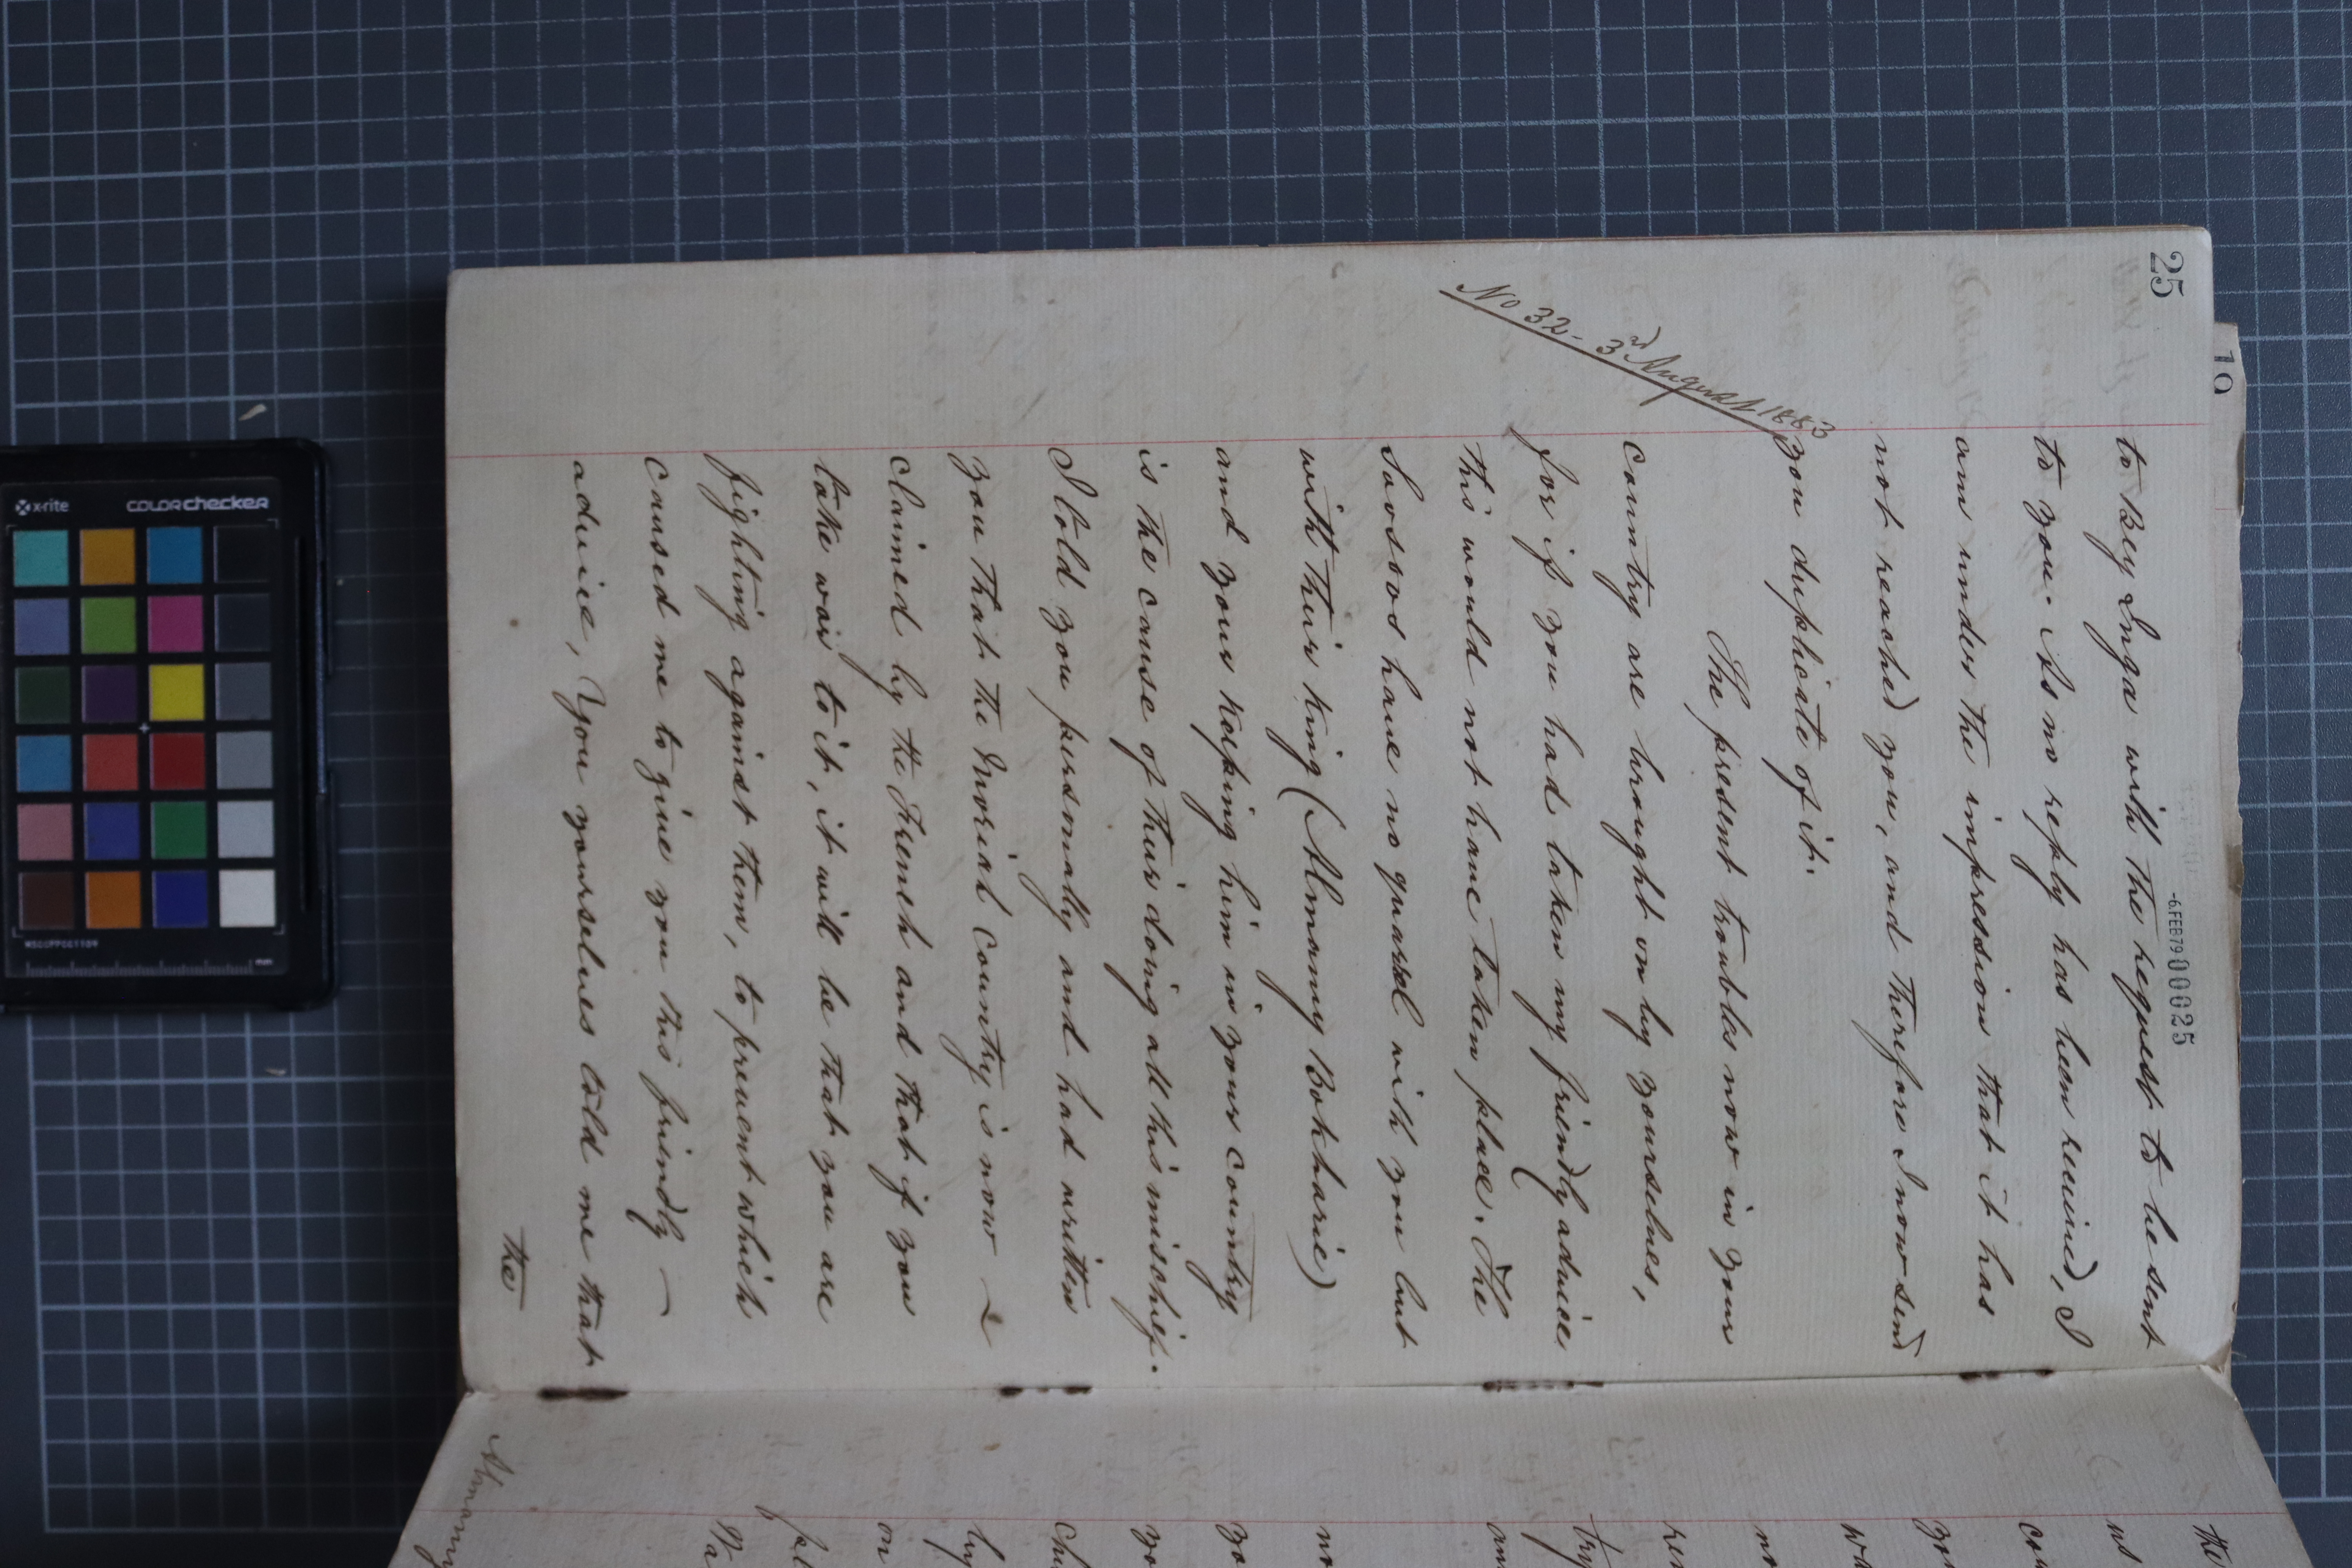 25
19
-6.FEB79 000025
to Bey Inga with the request to be sent
to you. As no reply has been received, I
am under the impression that it has
not reached you, and therefore I now send
No 32 - 3rd August 1883
you duplicate of it.
The present troubles now in your
Country are brought on by yourselves,
for if you had taken my friendly advice
this would not have taken place. The
Soosoos have no quarrel with you but
with their king (Almamy Bokharie)
and your keeping him in your country
is the cause of their doing all this mischief.
I told you personally and had written
you that the Moriah Country is now &
claimed by the French and that if you
take war to it, it will be that you are
fighting against them, to prevent which
caused me to give you this friendly —
advice, You yourselves told me that
the
the
us
con
you
wa
no
her
try
and
no
yo
yo
chi
by
on
fel
Wa
Almamy
x-rite
colorchecker
mm